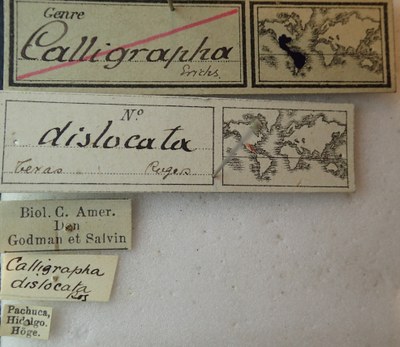 Genre
Calligrapha
Erichs.
N°
dislocata
Texas Rogers
Biol. C. Amer.
Don
Godman et Salvin
Calligrapha
dislocata
Pachuca,
Hidalgo.
Höge.